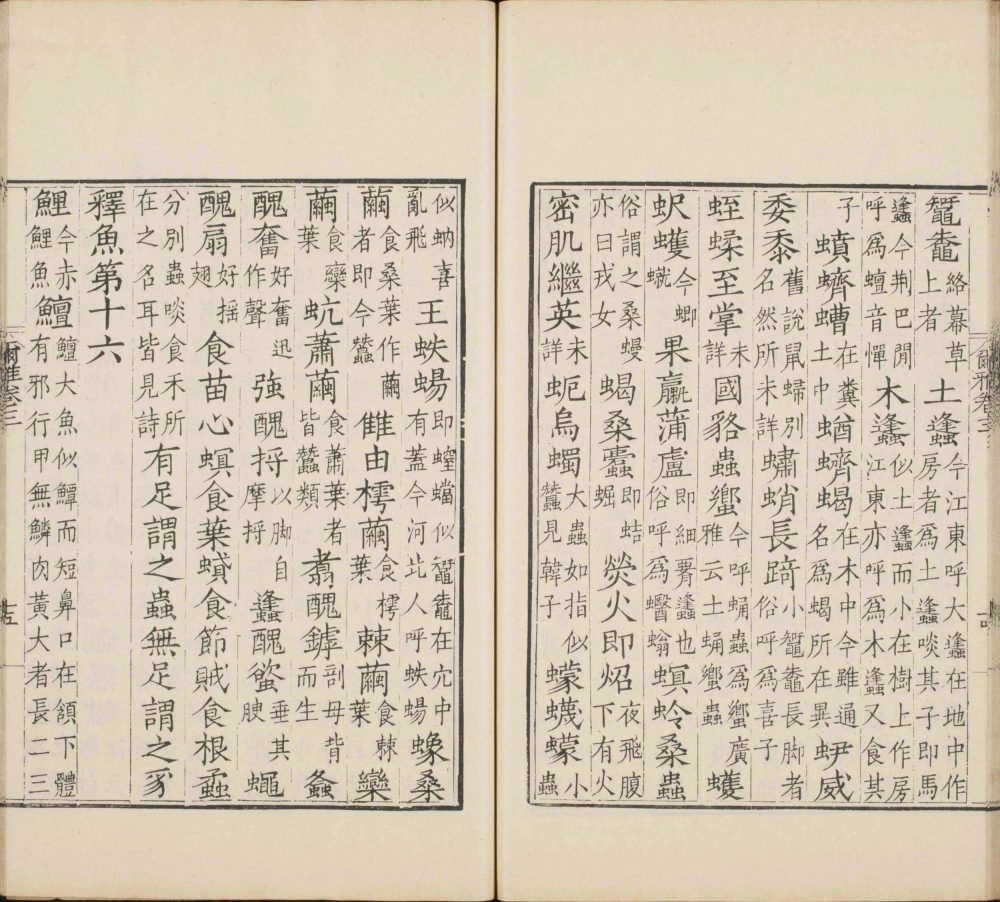 鼅鼄絡幕草上者土䗬今江東呼大䗬在地中作房者爲土䗬啖其子即馬
䗬今荆巴閒呼爲蟺音憚木䗬似土䗬而小在樹上作房江東亦呼爲木䗬又食其
子蟦蠐螬在糞土中蝤蠐蝎在木中今雖通名爲蝎所在異蛜威
委黍舊說鼠婦別名然所未詳蠨蛸長踦小鼅鼄長脚者俗呼爲喜子
蛭蝚至掌未詳國貉蟲蠁今呼蛹蟲爲蠁廣雅云土蛹蠁蟲蠖
蚇蠖今蝍蠀果蠃蒲盧即細䙅䗬也俗呼爲蠮螉螟蛉桑蟲
俗謂之桑蟃亦曰戎女蝎桑蠹即蛣䖦熒火即炤夜飛腹下有火
密肌繼英未詳蚅烏蠋大蟲如指似蠶見韓子蠓蠛蠓小蟲
似蚋喜亂飛王蛈蝪即螲蟷似鼅鼄在穴中有蓋今河北人呼蛈蝪蟓桑
繭食桑葉作繭者即今蠶雔由樗繭食樗葉棘繭食棘葉欒
繭食欒葉蚢蕭繭食蕭葉者皆蠶類翥醜罅剖母背而生螽
醜奮好奮迅作聲強醜捋以脚自摩捋䗬醜螸垂其腴蠅
醜扇好搖翅食苗心螟食葉蟘食節賊食根蟊
分別蟲啖食禾所在之名耳皆見詩有足謂之蟲無足謂之豸
釋魚第十六
鯉今赤鯉魚鱣鱣大魚似鱏而短鼻口在頷下體有邪行甲無鱗肉黃大者長二三
爾雅卷三
十四
爾雅卷三
十五